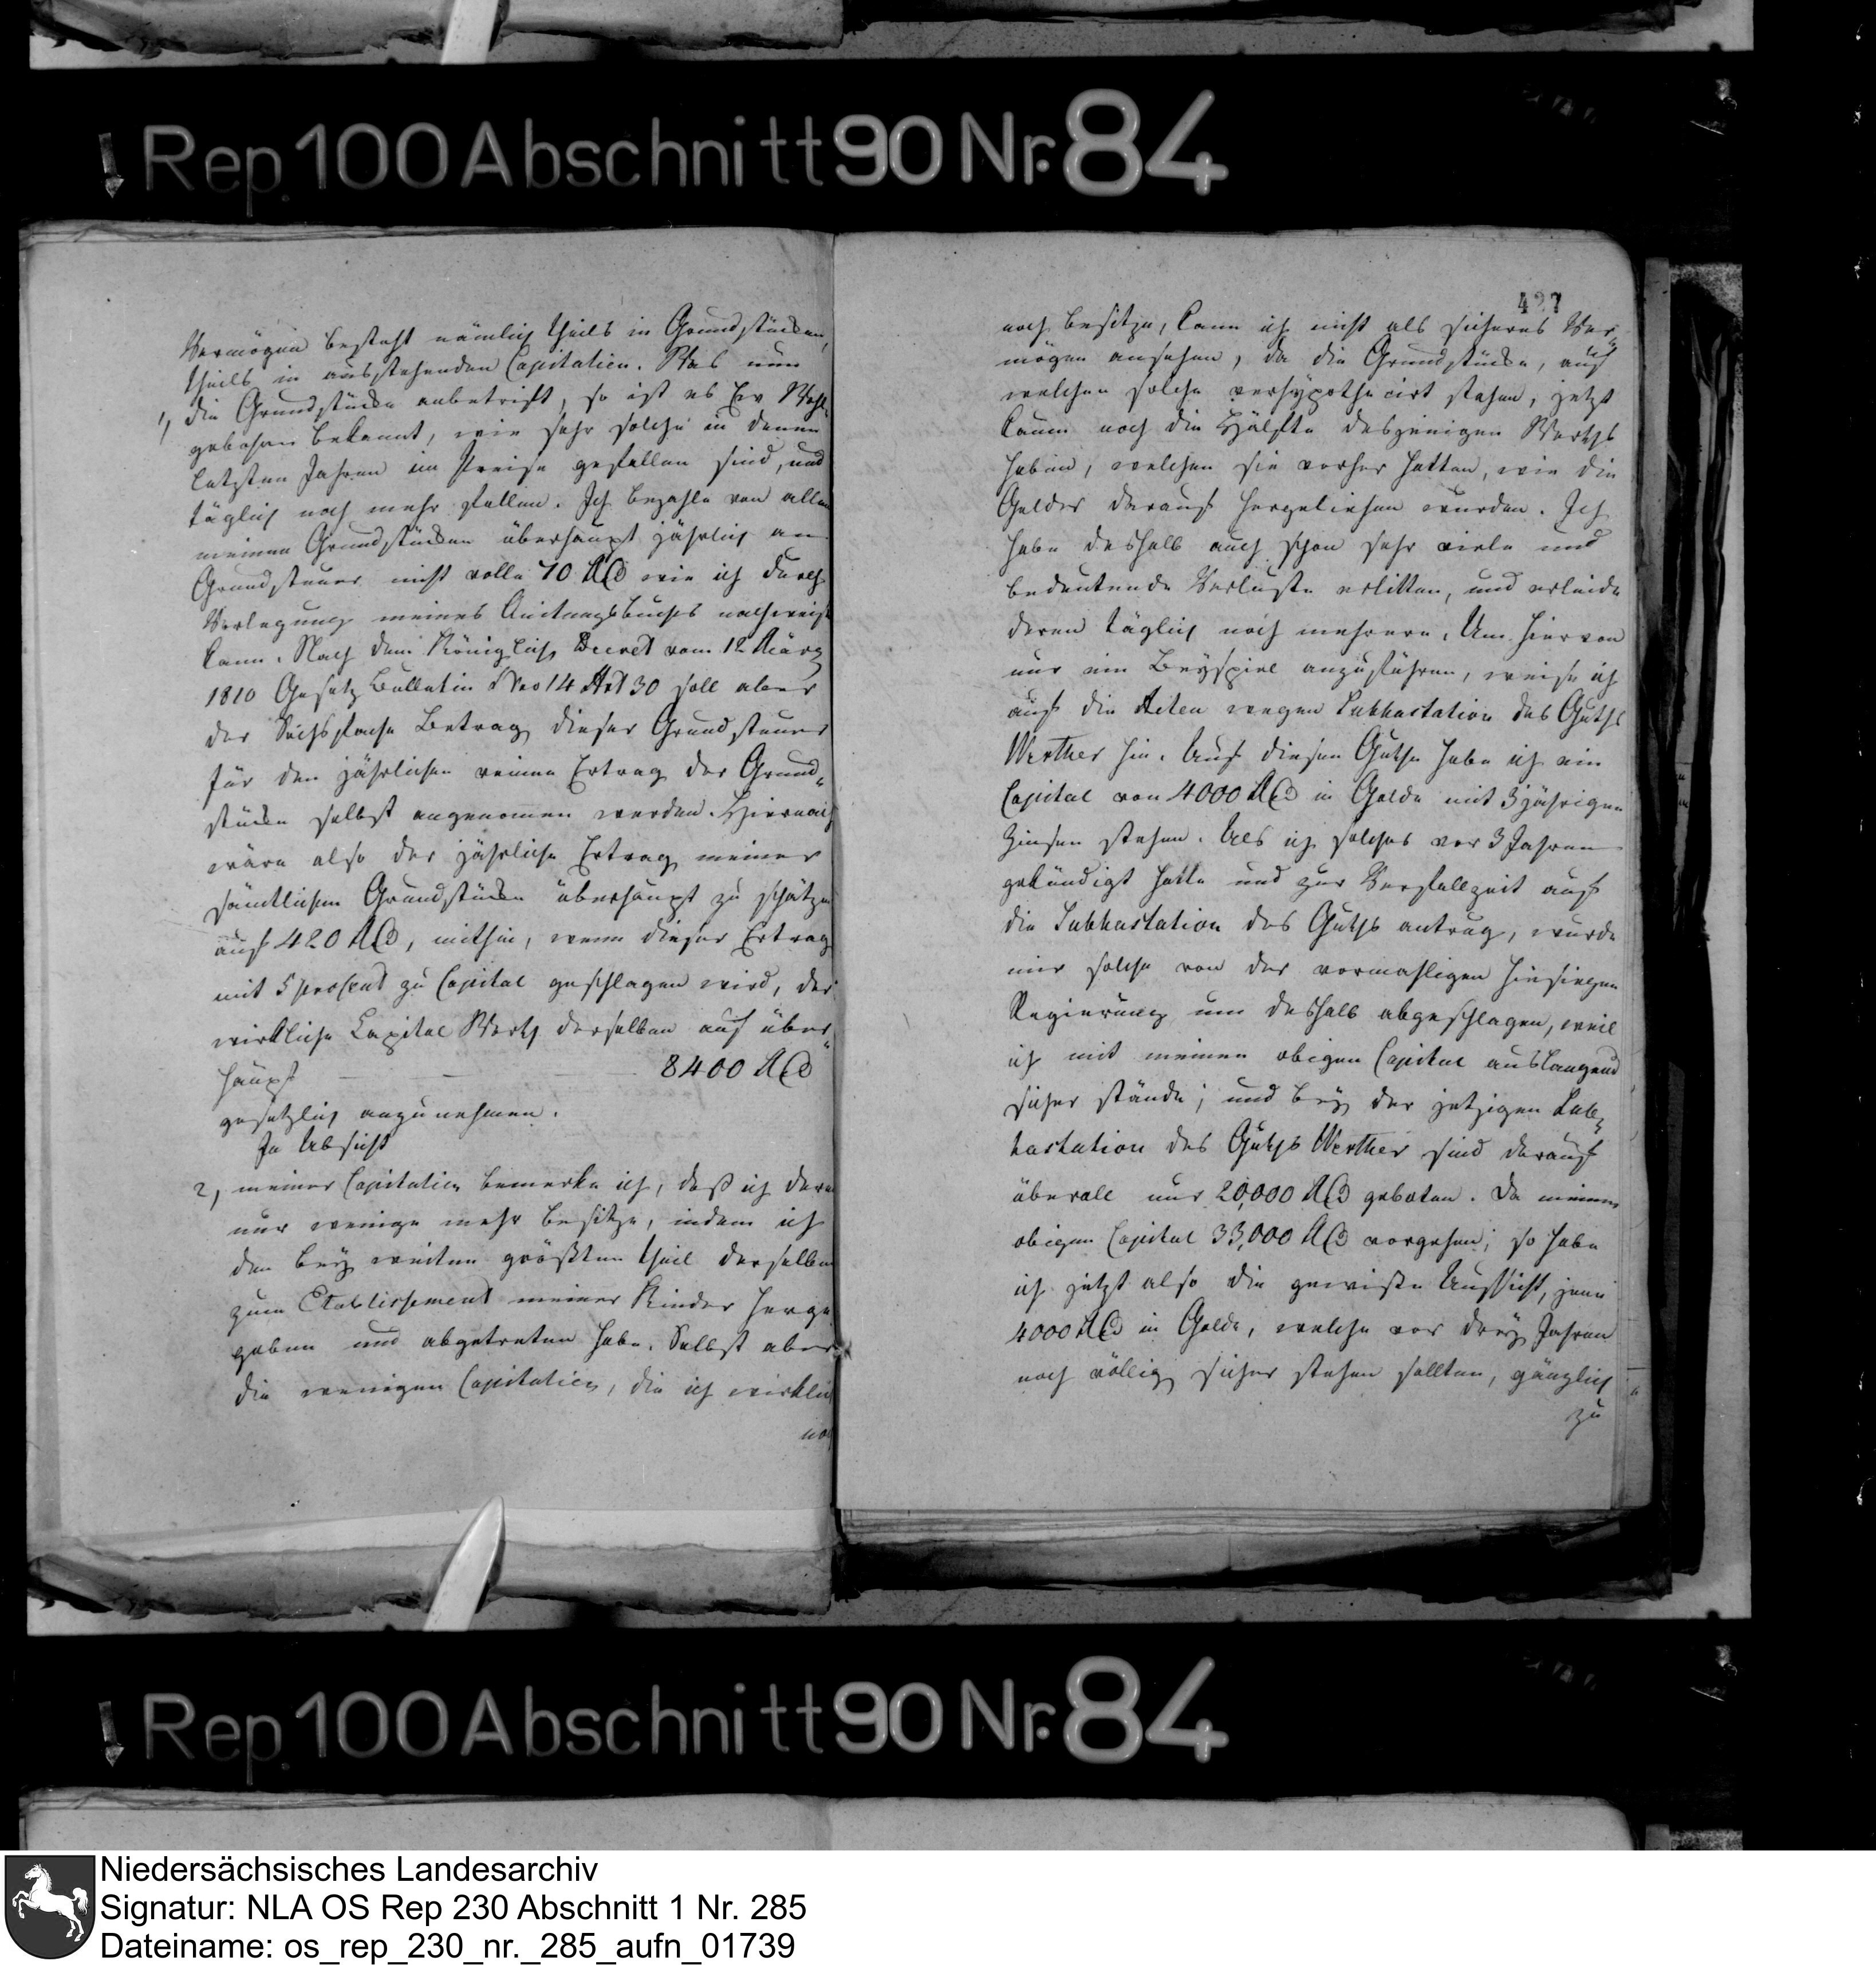 Rep 100 Abschnitt 90 Nr. 84
Vermögen besteht nämlich theils in Grundstücken,
theils in ausstehenden Capitalien. Was nun
1, die Grundstücke anbetrift, so ist es Ew Wohl-
gebohren bekannt, wie sehr solche in denen
letzten Jahren im Preise gefallen sind, und
täglich noch mehr fallen. Ich bezahle von allen
meinen Grundstücken überhaupt jährlich an
Grundsteuer nicht volle 70 Rthlr wie ich durch
Vorlegung meines Quitungsbuchs nachweisen
kann. Nach dem Königlich Decret vom 12 März
1810 Gesetz Bulletin Nro 14 Art 30 soll aber
der Sechsfache Betrag dieser Grundsteuer
für den jährlichen reinen Ertrag der Grund-
stücke selbst angenommen werden. Hiernach
wäre also der jährliche Ertrag meiner
sämtlichen Grundstücke überhaupt zu schätzen
auf 420 Rthlr, mithin, wenn dieser Ertrag
mit 5 proCent zu Capital geschlagen wird, der
wirkliche Capital Werth derselben auf über-
haupt 8400 Rthlr
gesetzlich anzunehmen.
In Absicht
2, meiner Capitalien bemerke ich, daß ich deren
nur wenige mehr besitze, indem ich
den bey weiten größten theil derselben
zum Etablissement meiner Kinder herge
geben und abgetreten habe. Selbst aber
die wenigen Capitalien, die ich wirklich
noch
427
noch besitze, kann ich nicht als sicheres Ver-
mögen ansehen, da die Grundstücke, auf
welchen solche verhypothecirt stehen, jetzt
kaum noch die Hälfte desjenigen Werths
haben, welchen sie vorher hatten, wie die
Gelder darauf hergeliehen wurden. Ich
habe deshalb auch schon sehr viele und
bedeutende Verluste erlitten, und erleide
deren täglich noch mehrere. Um hiervon
nur ein Beyspiel anzuführen, weise ich
auf die Acten wegen Subhastation des Guths
Werther hin. Auf diesen Guthe habe ich ein
Capital von 4000 Rthlr in Golde mit 3jährigen
Zinsen stehen. Als ich solches vor 3 Jahren
gekündigt hatte und zur Verfallzeit auf
die Subhastation des Guths antrug, wurde
mir solche von der vormahligen hiesigen
Regierung um deshalb abgeschlagen, weil
ich mit meinen obigen Capital auslangend
sicher stände; und bey der jetzigen Sub-
hastation des Guths Werther sind darauf
überall nur 20,000 Rthlr geboten. Da meinem
obigen Capital 33,000 Rthlr vorgehen; so habe
ich jetzt also die gewisse Aussicht, jene
4000 Rthlr in Golde, welche vor drey Jahren
noch völlig sicher stehen sollten, gänzlich
zu
Rep 100 Abschnitt 90 Nr. 84
Niedersächsisches Landesarchiv
Signatur: NLA OS Rep 230 Abschnitt 1 Nr. 285
Dateiname: os_rep_230_nr._285_aufn_01739